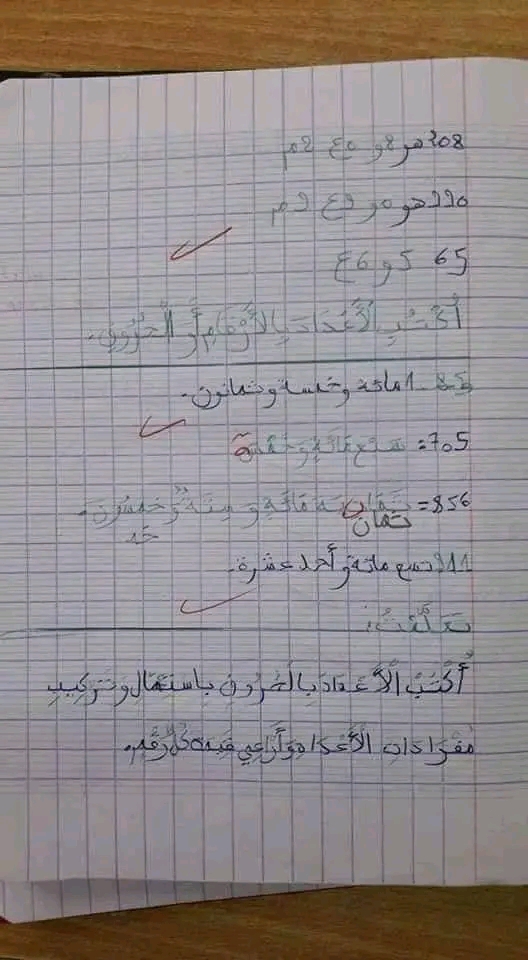 208 هو 8 و 0ع 2م
990 هو 0 و 9ع 9م
65 5 و 6ع
أُكْتُبِ الْأَعْدَادَ بِالأَرْقَامِ أَوِ الْحُرُوفِ.
185 مائة وخمسة وثمانون.
705 = سَبْع مائَةٍ وخَمْسَة
856 = ثَمَان مَائَةٍ وَسِتَّة وخَمْسُونَ.
ثمان
911 تسع مائة وأحد عشرة.
تَعَلَّمْتُ:
أَكْتُبُ الْأَعْدَادَ بِالْحُرُوفِ باستعمال وَتَرْكِيبِ
مُفْرَدَاتِ الْأَعْدَادِ وَأُرَاعِي قِيمَة كُلِّ رَقْمٍ.